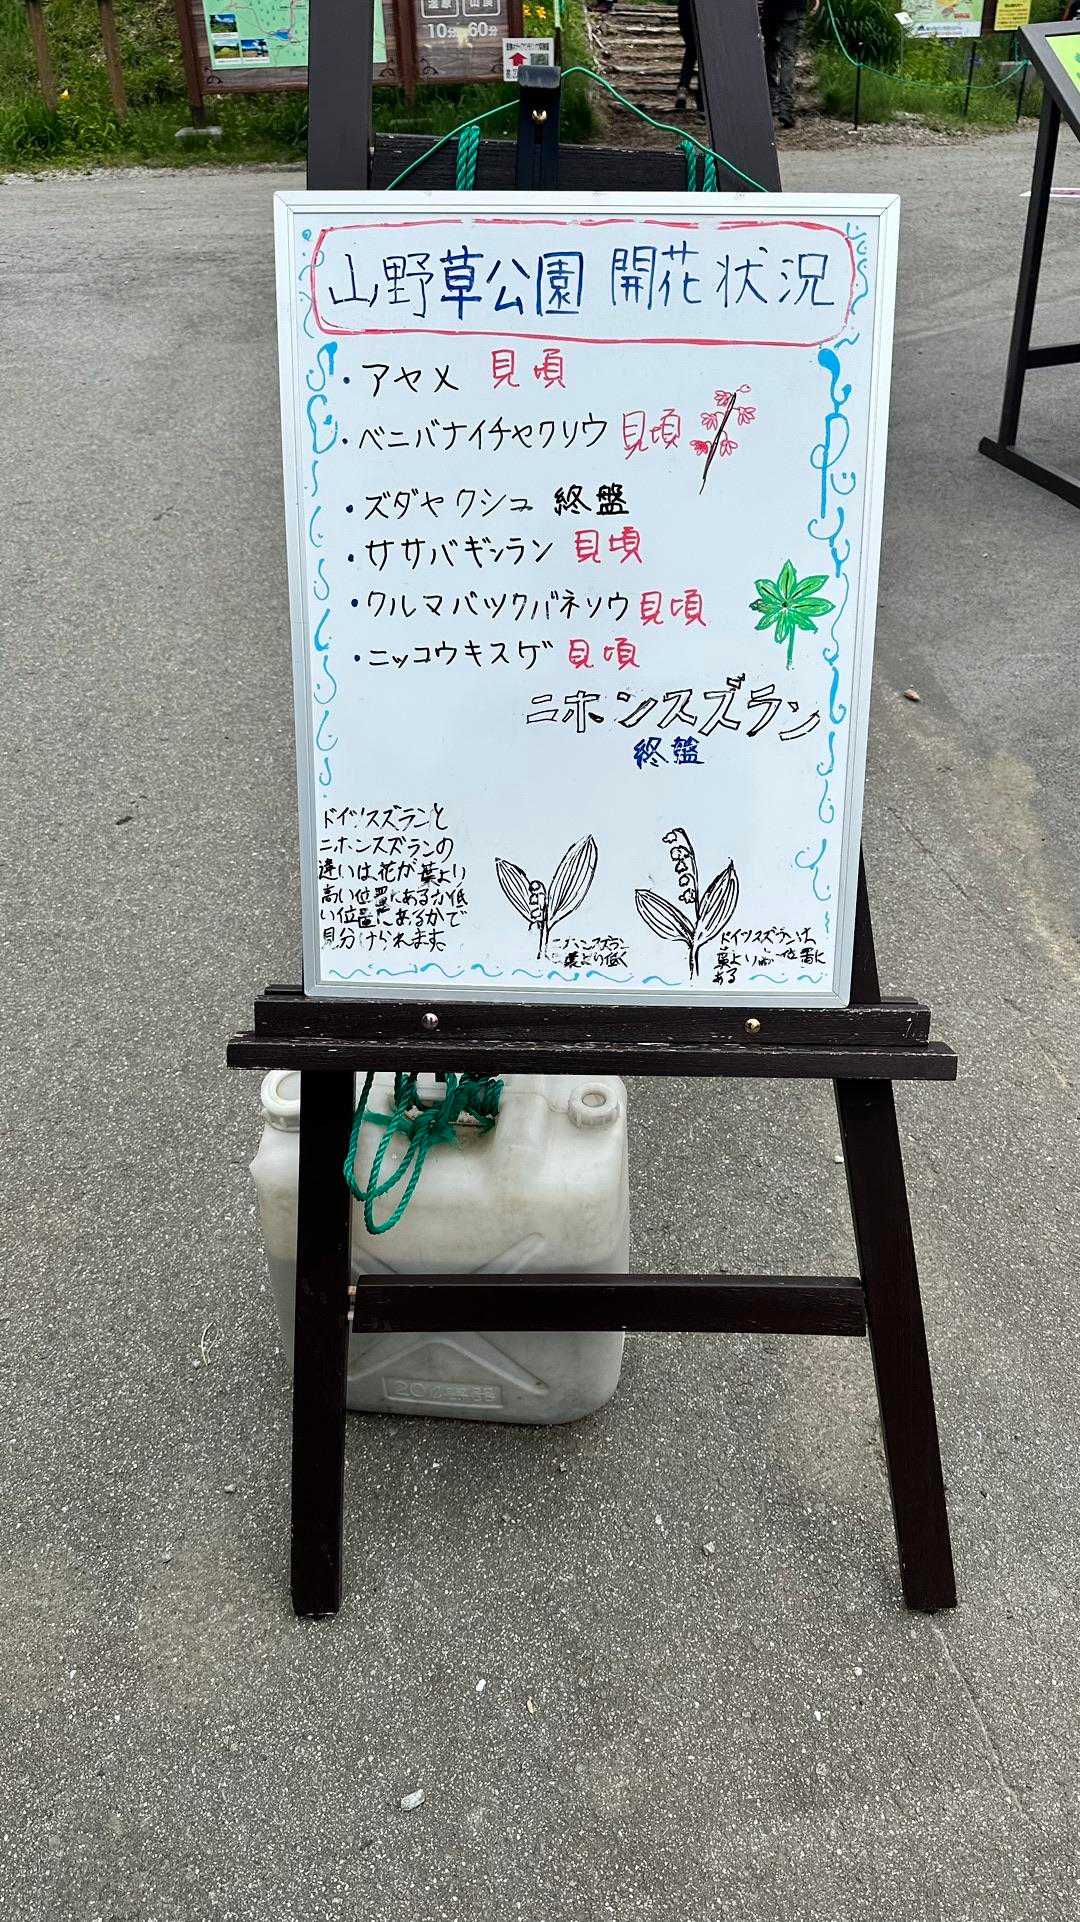 10分 60分
山野草公園 開花状況
・アヤメ 見頃
・ベニバナイチヤクソウ 見頃
・ズダヤクシュ 終盤
・ササバギンラン 見頃
・クルマバツクバネソウ 見頃
・ニッコウキスゲ 見頃
ニホンスズラン
終盤
ドイツスズランと
ニホンスズランの
違いは、花が葉より
高い位置にあるか低
い位置にあるかで
見分けられます。
ニホンスズラン
葉より低く
ドイツスズランは、
葉より 位置に
ある
20